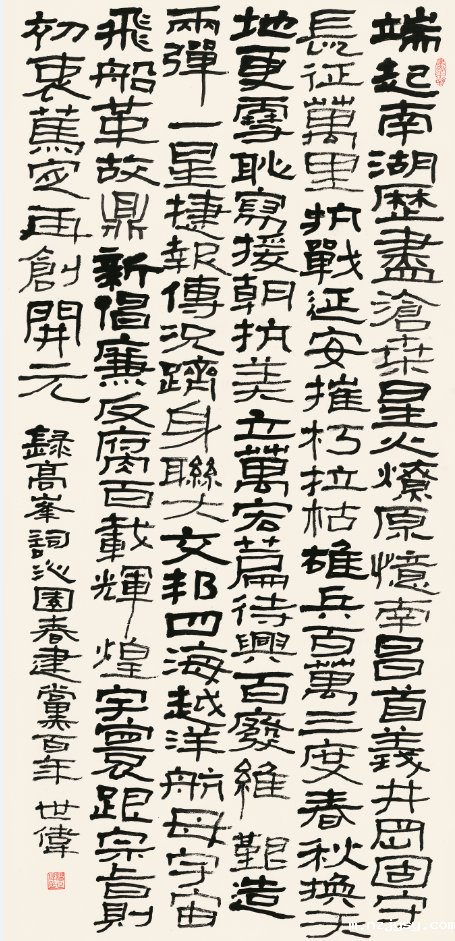 端起南湖歷盡滄桑星火燎原憶南昌首義井岡固守
長征萬里抗戰延安摧朽拉枯雄兵百萬三度春秋換天
地更雪恥寫援朝抗美立萬宏篇待興百廢維艱造
兩彈一星捷報傳況躋身聯大友邦四海越洋航母宇宙
飛船革故鼎新倡廉反腐百載輝煌宇寰跟宗旨則
初衷篤定再創開元 錄高峯詞沁園春建黨百年 世偉